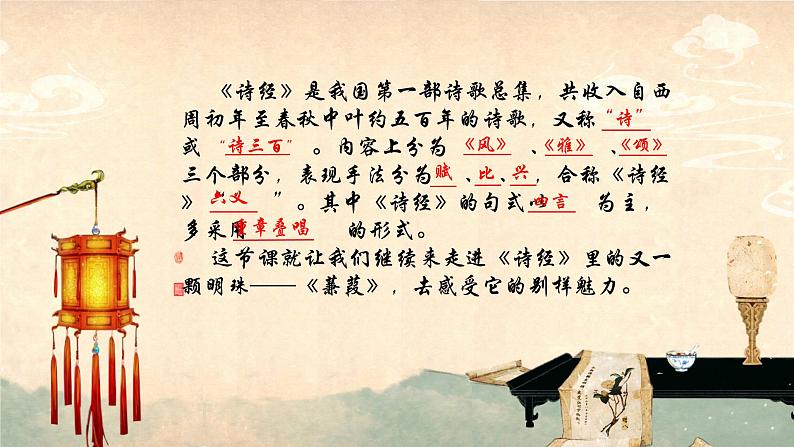 《诗经》是我国第一部诗歌总集，共收入自西
周初年至春秋中叶约五百年的诗歌，又称“诗”
或“诗三百”。内容上分为《风》、《雅》、《颂》
三个部分，表现手法分为赋、比、兴，合称《诗经
》六义”。其中《诗经》的句式以四言为主，
多采用重章叠唱的形式。
这节课就让我们继续来走进《诗经》里的又一
颗明珠——《蒹葭》，去感受它的别样魅力。